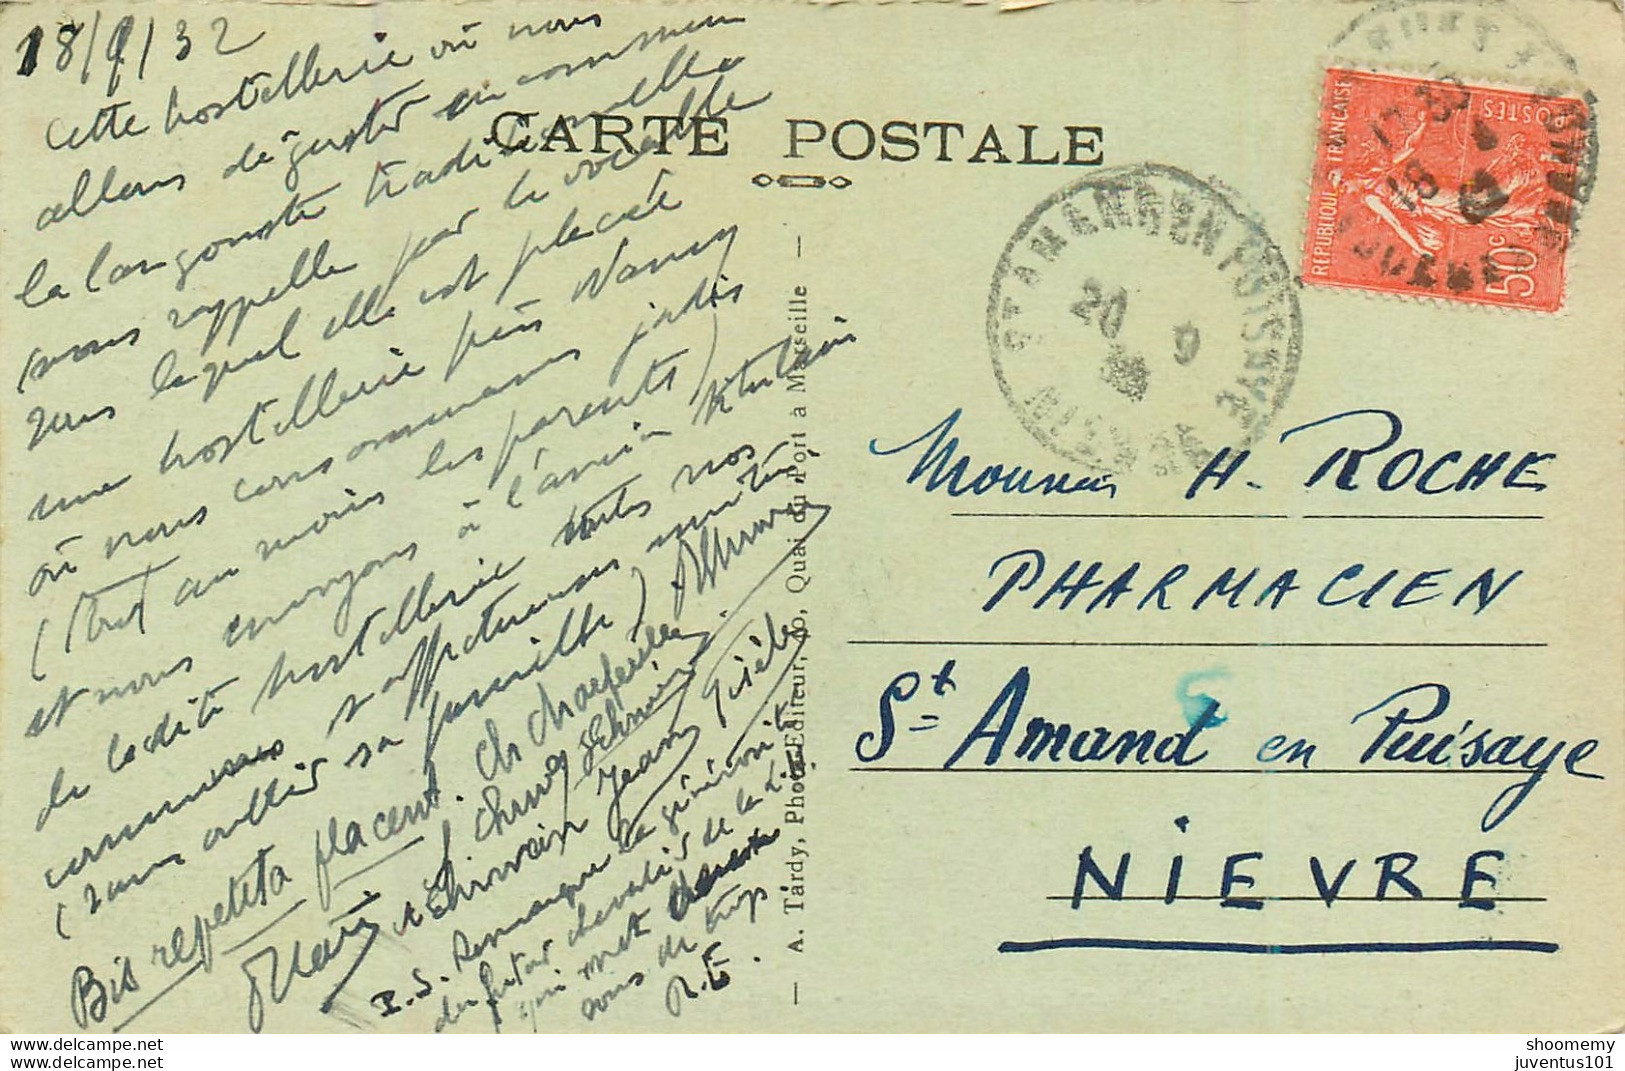 18/9/32
Cette hostellerie où nous
allons déguster en commun
la langouste traditionnelle
nous rappelle par le vocable
sous lequel elle est placée
une hostellerie près Nancy
où nous consommions jadis
(tout au moins les parents)
et nous envoyons à l'ancien
de ladite hostellerie toutes nos
communes & affectueuses
(sans oublier sa famille)
Bis repetita placent.
Marie
Jean Gisèle
P.S. Remarquez la générosité
du futur chevalier de la L.H.
qui met
sous de trop
R.E.
CARTE POSTALE
— A. Tardy, Photo-Editeur, 40, Quai du Port à Marseille —
REPUBLIQUE FRANÇAISE
POSTES
50c
17 30
18
ST AMAND EN PUISAYE
20 9
NIEVRE
Monsieur H. ROCHE
PHARMACIEN
St Amand en Puisaye
NIEVRE
delcampe.net
delcampe.net
shoomemy
juventus101